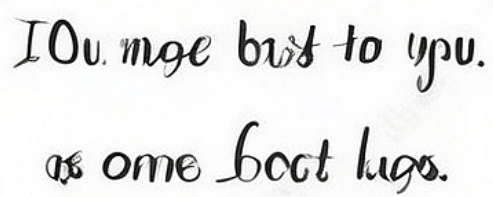 IOu. mge bist to ypu.
as ome boct lugs.